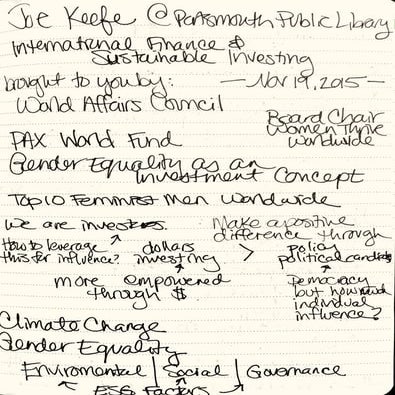 Joe Keefe @ Portsmouth Public Library
International Finance &
Sustainable Investing
brought to you by: — Nov 19, 2015 —
World Affairs Council
Board Chair
Women Thrive
Worldwide
PAX World Fund
Gender Equality as an
Investment Concept
Top 10 Feminist Men Worldwide
We are investors.
Make a positive
difference through
How to leverage
this for influence?
dollars
investing
>
policy
political candidates
more empowered
through $
Democracy
but how much
individual
influence?
Climate Change
Gender Equality
Enviromental | Social | Governance
ESG Factors